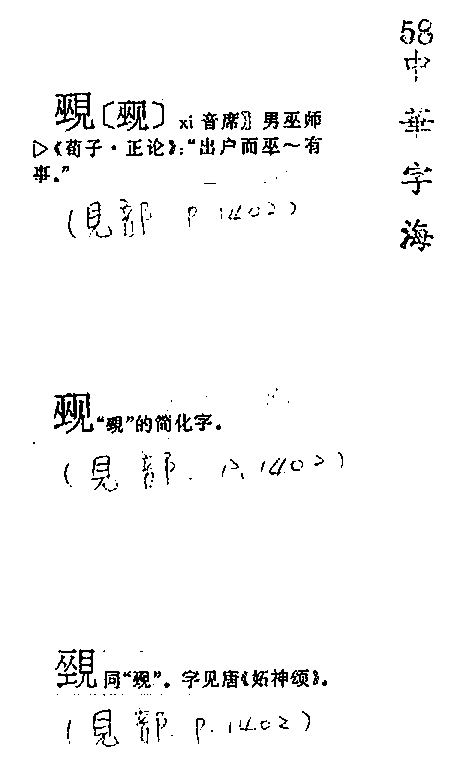 58中華字海
覡〔觋〕 xi 音席〗男巫师
▷《荀子·正论》:“出户而巫～有
事。”
(見部 P.1402)
觋“覡”的简化字。
(見部.P.1402)
同“覡”。字见唐《妬神颂》。
(見部.P.1402)